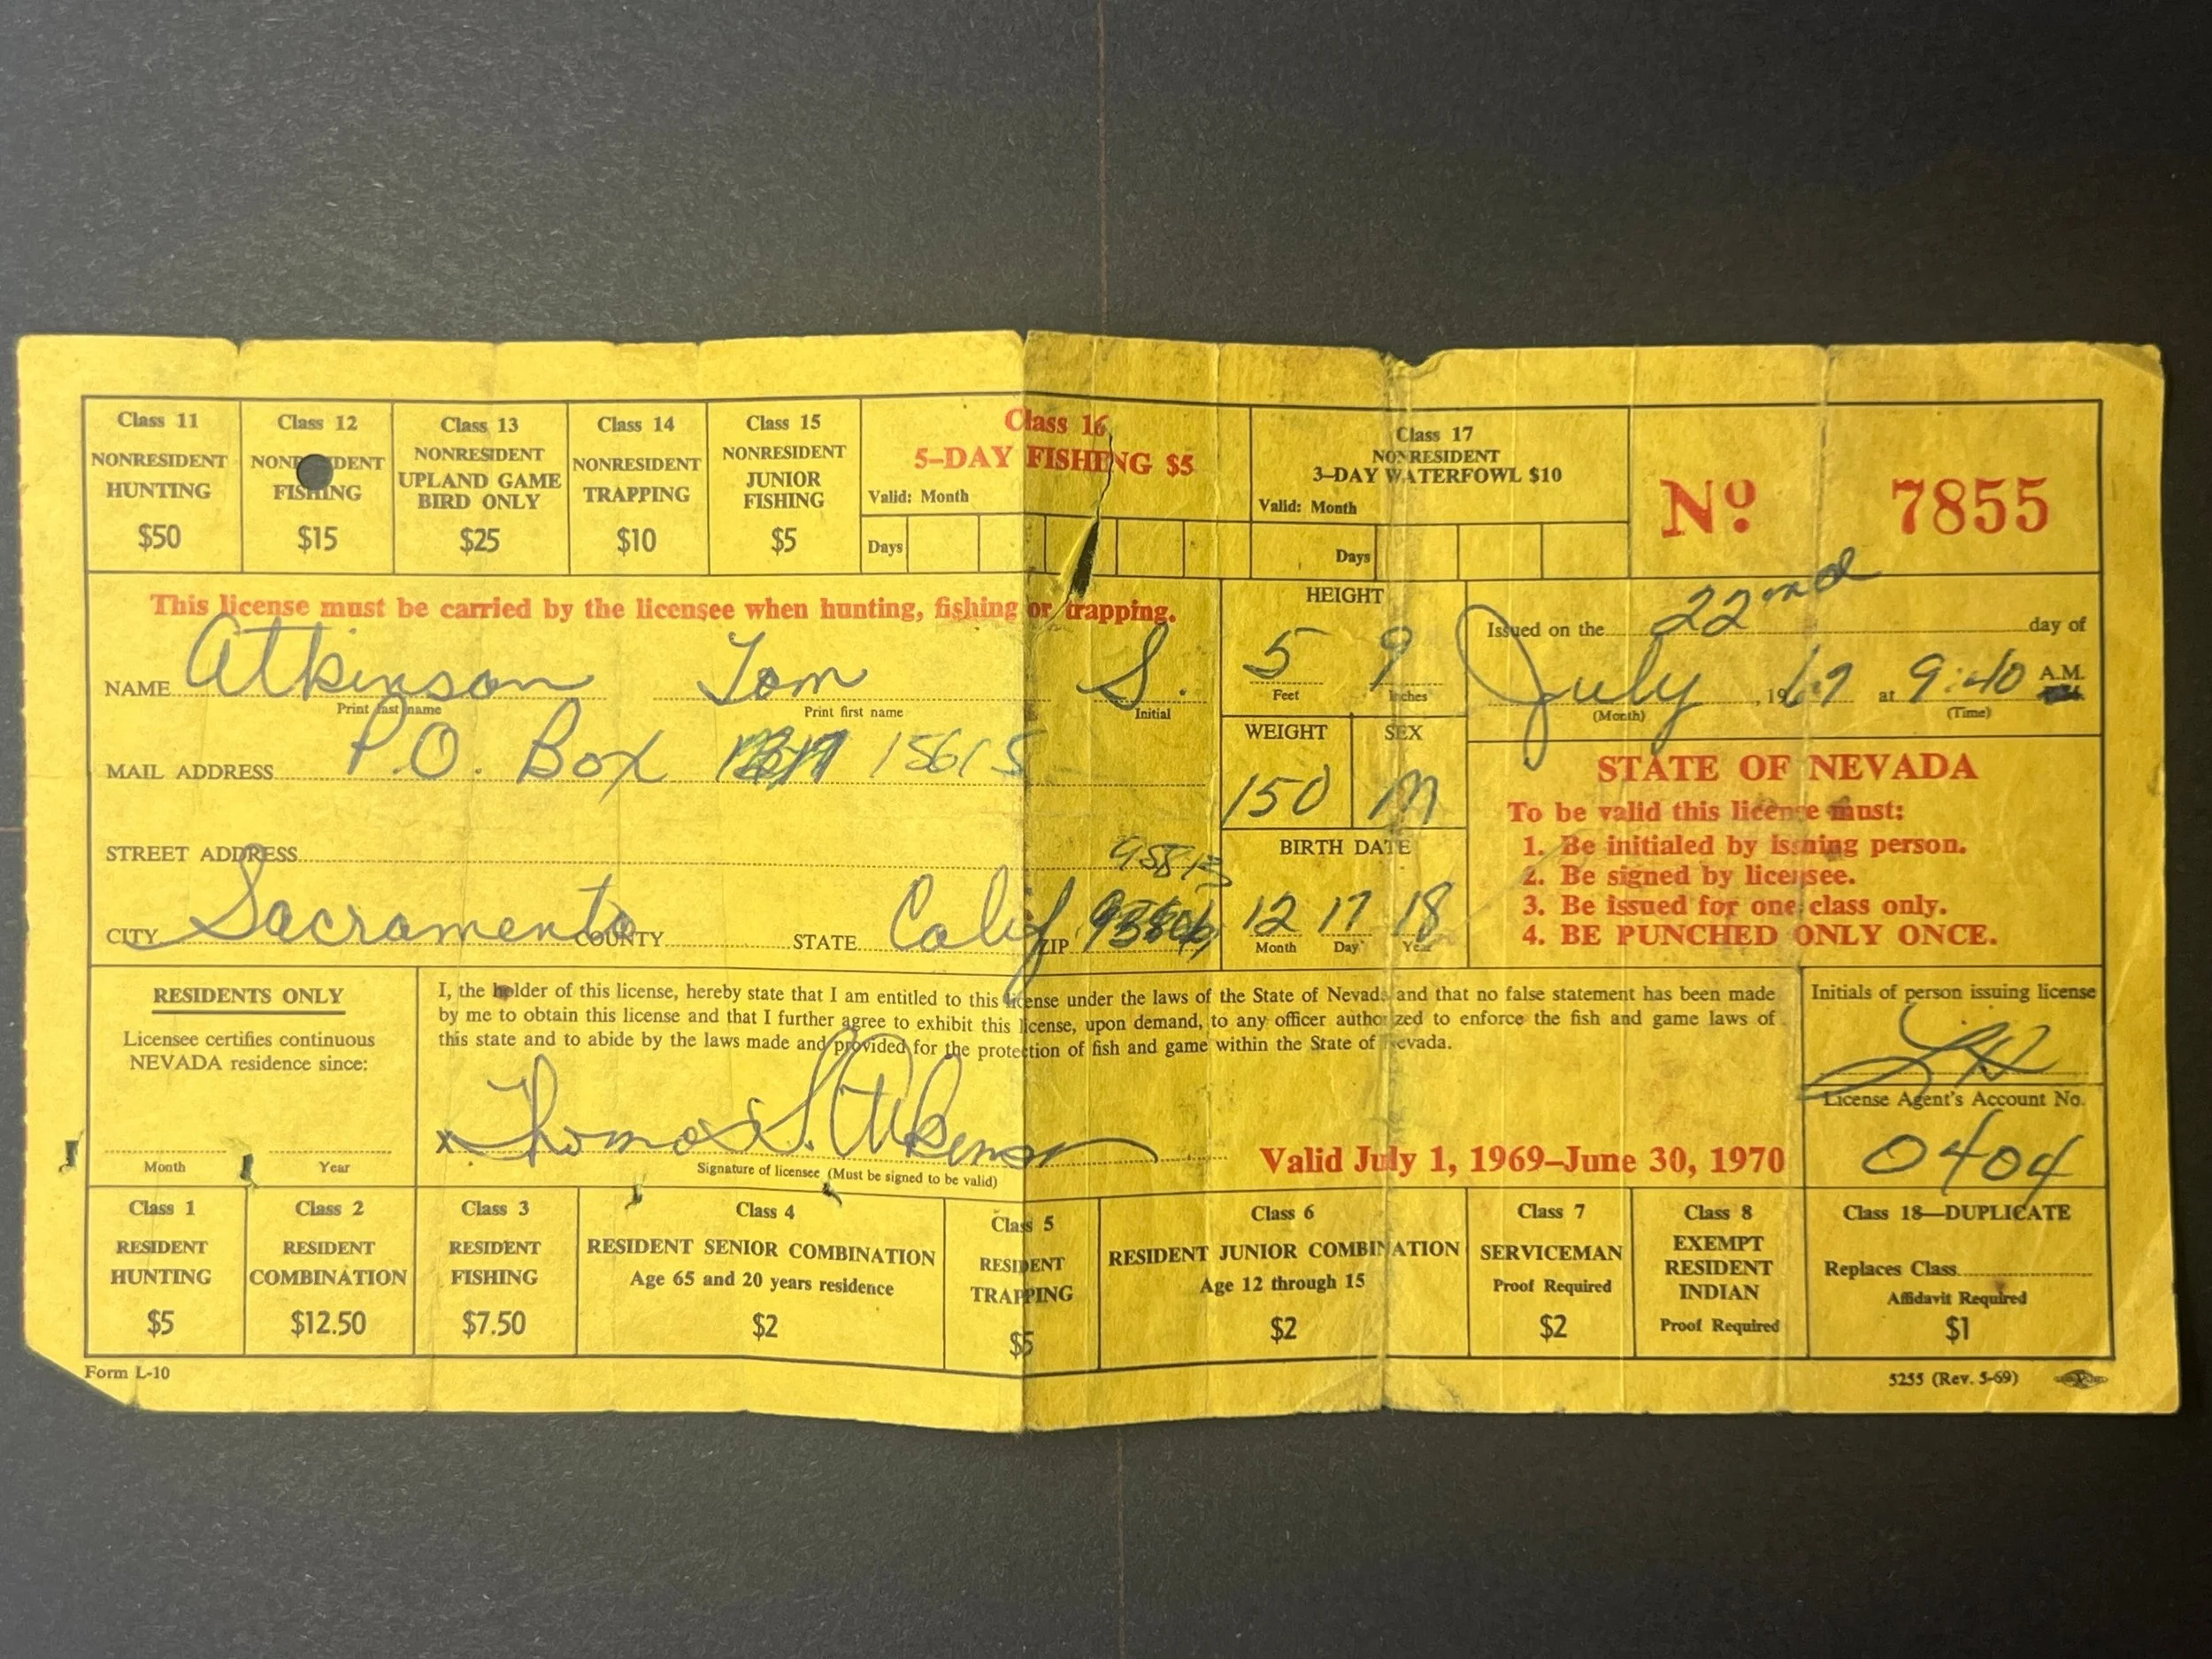 Class 11 Class 12 Class 13 Class 14 Class 15 Class 16 Class 17
NONRESIDENT HUNTING $50
FISHING $15
NONRESIDENT UPLAND GAME BIRD ONLY $25
NONRESIDENT TRAPPING $10
NONRESIDENT JUNIOR FISHING $5
5-DAY FISHING $5
Valid: Month
Days
NONRESIDENT
3-DAY WATERFOWL $10
Valid: Month
Days
Nº 7855
This license must be carried by the licensee when hunting, fishing or trapping.
NAME Atkinson Tom S.
Print last name Print first name Initial
MAIL ADDRESS P.O. Box 15615
STREET ADDRESS
95813
CITY Sacramento COUNTY STATE Calif ZIP
HEIGHT
5 9
Feet Inches
WEIGHT SEX
150 M
BIRTH DATE
12 17 18
Month Day Year
Issued on the 22nd day of
July, 1969 at 9:40 A.M.
(Month) (Time)
STATE OF NEVADA
To be valid this license must:
1. Be initialed by issuing person.
2. Be signed by licensee.
3. Be issued for one class only.
4. BE PUNCHED ONLY ONCE.
RESIDENTS ONLY
Licensee certifies continuous
NEVADA residence since:
Month Year
I, the holder of this license, hereby state that I am entitled to this license under the laws of the State of Nevada and that no false statement has been made
by me to obtain this license and that I further agree to exhibit this license, upon demand, to any officer authorized to enforce the fish and game laws of
this state and to abide by the laws made and provided for the protection of fish and game within the State of Nevada.
x Thomas S. Atkinson
Signature of licensee (Must be signed to be valid)
Valid July 1, 1969–June 30, 1970
Initials of person issuing license
License Agent's Account No.
0404
Class 1
RESIDENT
HUNTING
$5
Class 2
RESIDENT
COMBINATION
$12.50
Class 3
RESIDENT
FISHING
$7.50
Class 4
RESIDENT SENIOR COMBINATION
Age 65 and 20 years residence
$2
Class 5
RESIDENT
TRAPPING
$5
Class 6
RESIDENT JUNIOR COMBINATION
Age 12 through 15
$2
Class 7
SERVICEMAN
Proof Required
$2
Class 8
EXEMPT
RESIDENT
INDIAN
Proof Required
Class 18—DUPLICATE
Replaces Class
Affidavit Required
$1
Form L-10
5255 (Rev. 5-69)